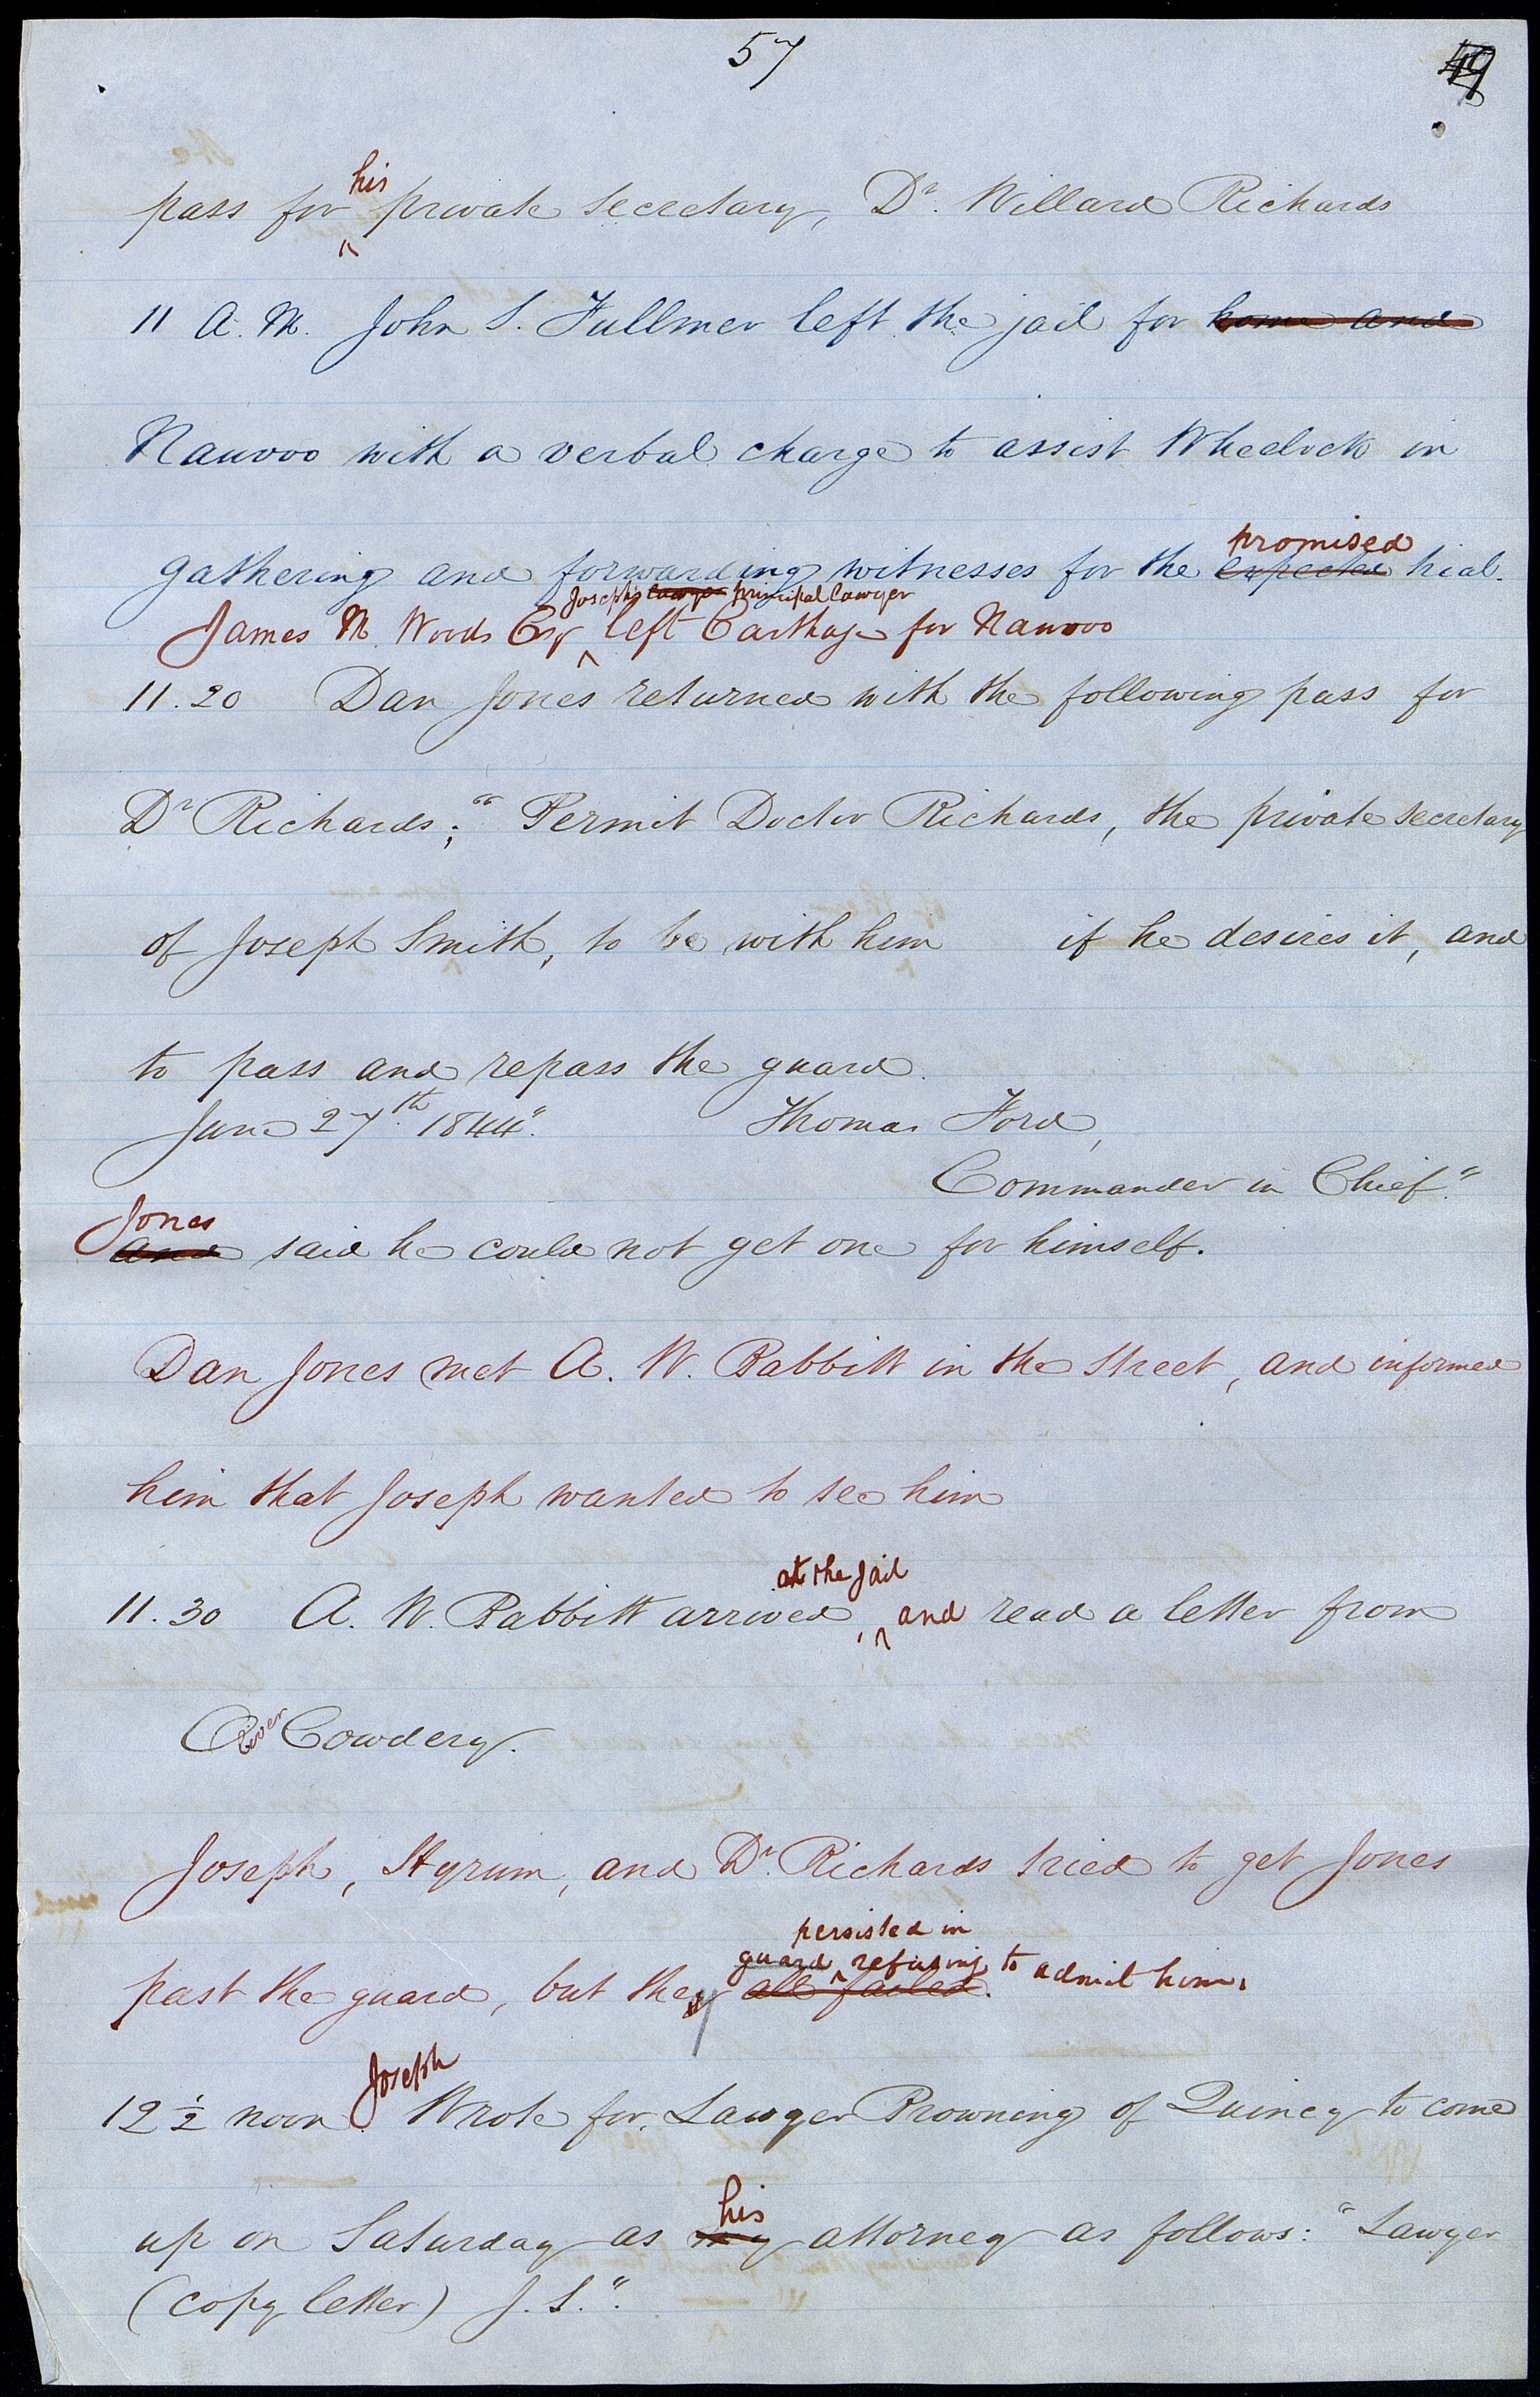 57
49
pass for his private secretary, Dr. Willard Richards
11 A. M. John S. Fullmer left the jail for home and
Nauvoo with a verbal charge to assist Wheelock in
gathering and forwarding witnesses for the expected promised trial.
James W. Woods Esqr Joseph's lawyer principal lawyer left Carthage for Nauvoo
11.20 Dan Jones returned with the following pass for
Dr Richards; "Permit Doctor Richards, the private secretary
of Joseph Smith, to be with him if he desires it, and
to pass and repass the guard.
June 27th. 1844". Thomas Ford,
Commander in Chief."
and Jones said he could not get one for himself.
Dan Jones met A. W. Babbitt in the street, and informed
him that Joseph wanted to see him
11.30 A. W. Babbitt arrived, at the jail and read a letter from
Oliver Cowdery.
Joseph, Hyrum, and Dr. Richards tried to get Jones
past the guard, but they all failed. guard persisted in refusing to admit him.
12 1/2 noon. Joseph Wrote for Lawyer Browning of Quincy to come
up on Saturday as my his attorney as follows: "Lawyer
(copy letter) J. S.".